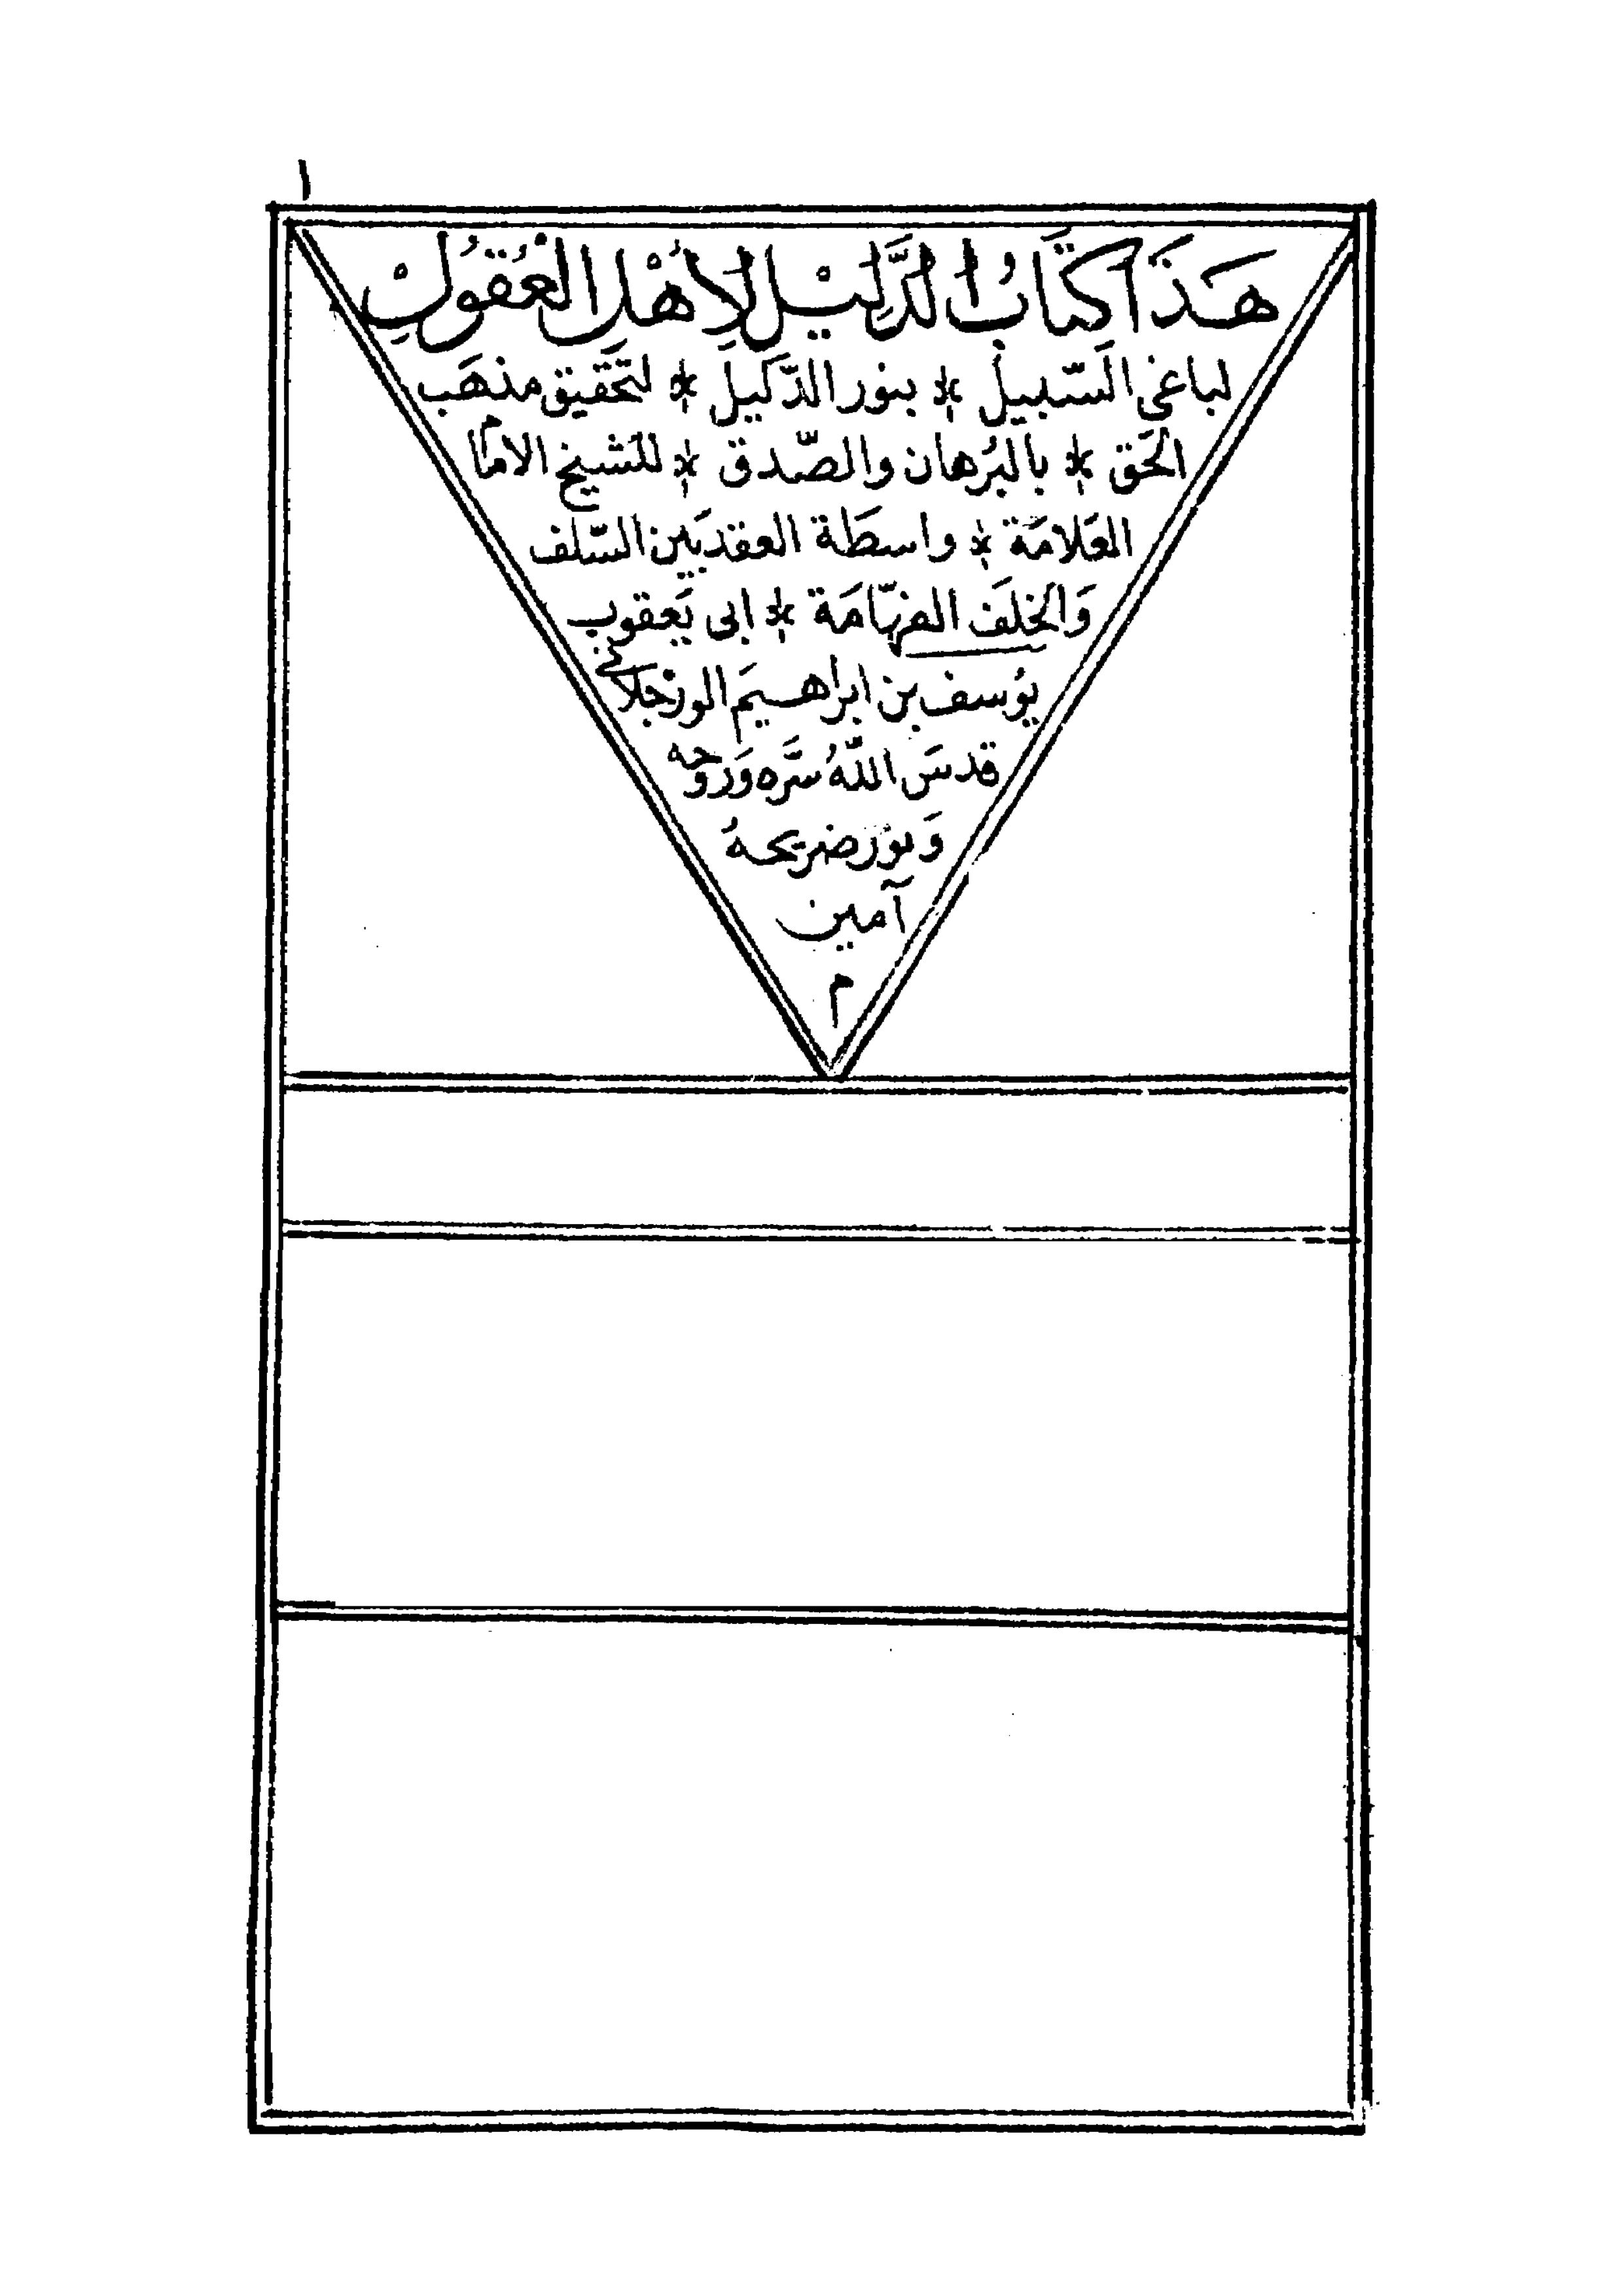 ١
هَذَا كتَابُ الدَّلِيْل لِاَهْل الْعُقُوْلِ
لباغى السّبيل * بنور الدّليل * لتحَقيق مذهَب
الحَق * بالبُرهان والصّدق * للشيخ الامام
العَلامَة * واسطَة العقد بَين السّلف
وَالخلَف الفهّامَة * ابى يَعقوب
يوُسف بن ابراهيمَ الورْجلانى
قدسَ اللّهُ سّره وَروحه
وَنوّر ضريحهُ
آمين
م